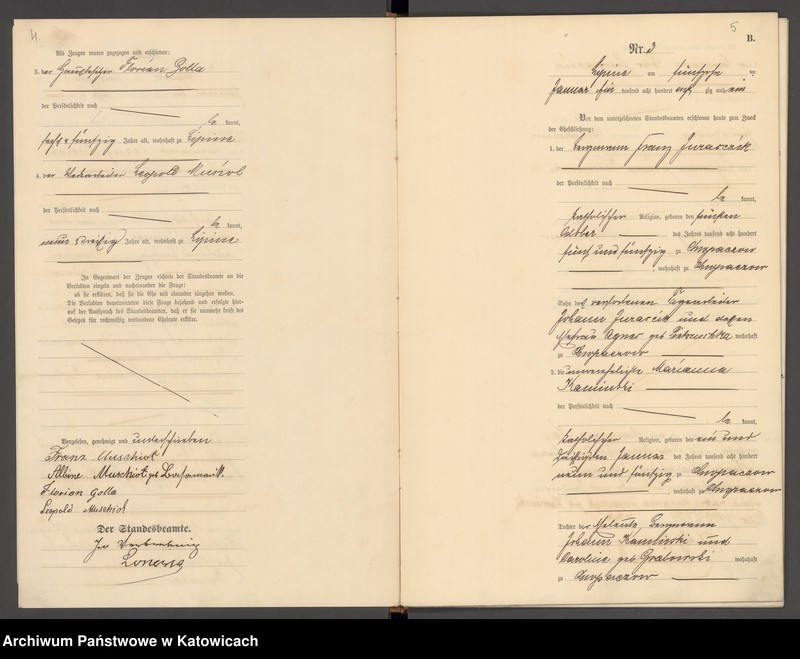 4.
Als Zeugen waren zugezogen und erschienen:
3. der Hausbesitzer Florian Golla
der Persönlichkeit nach
be kannt,
sechs u fünfzig Jahre alt, wohnhaft zu Lipine
4. der Leopold Muschiol
der Persönlichkeit nach
be kannt,
neun u dreißig Jahre alt, wohnhaft zu Lipine
In Gegenwart der Zeugen richtete der Standesbeamte an die
Verlobten einzeln und nacheinander die Frage:
ob sie erklären, daß sie die Ehe mit einander eingehen wollen.
Die Verlobten beantworteten diese Frage bejahend und erfolgte hier-
auf der Ausspruch des Standesbeamten, daß er sie nunmehr kraft des
Gesetzes für rechtmäßig verbundene Eheleute erkläre.
Vorgelesen, genehmigt und unterschrieben
Franz Muschiol
Albine Muschiol geb
Florian Golla
Leopold Muschiol
Der Standesbeamte.
In Vertretung
5
B.
Nr. 3
Lipine am fünfzehn ten
Januar ein tausend acht hundert acht zig und ein
Vor dem unterzeichneten Standesbeamten erschienen heute zum Zweck
der Eheschließung:
1. der Bergmann Franz Jurasczik
der Persönlichkeit nach
be kannt,
katholischer Religion, geboren den fünften
October des Jahres tausend acht hundert
fünf und fünfzig zu Chropaczow
, wohnhaft zu Chropaczow
Sohn des verstorbenen Tagearbeiter
Johann Jurasczik und dessen
Ehefrau Agnes geb wohnhaft
zu Chropaczow
2. die unverehelichte Marianna
Kaminski
der Persönlichkeit nach
be kannt,
katholischer Religion, geboren den ein und
dreißigsten Januar des Jahres tausend acht hundert
neun und fünfzig zu Chropaczow
, wohnhaft zu Chropaczow
Tochter der Eheleute, Bergmann
Johann Kaminski und
Caroline geb Grabowski wohnhaft
zu Chropaczow
Archiwum Państwowe w Katowicach